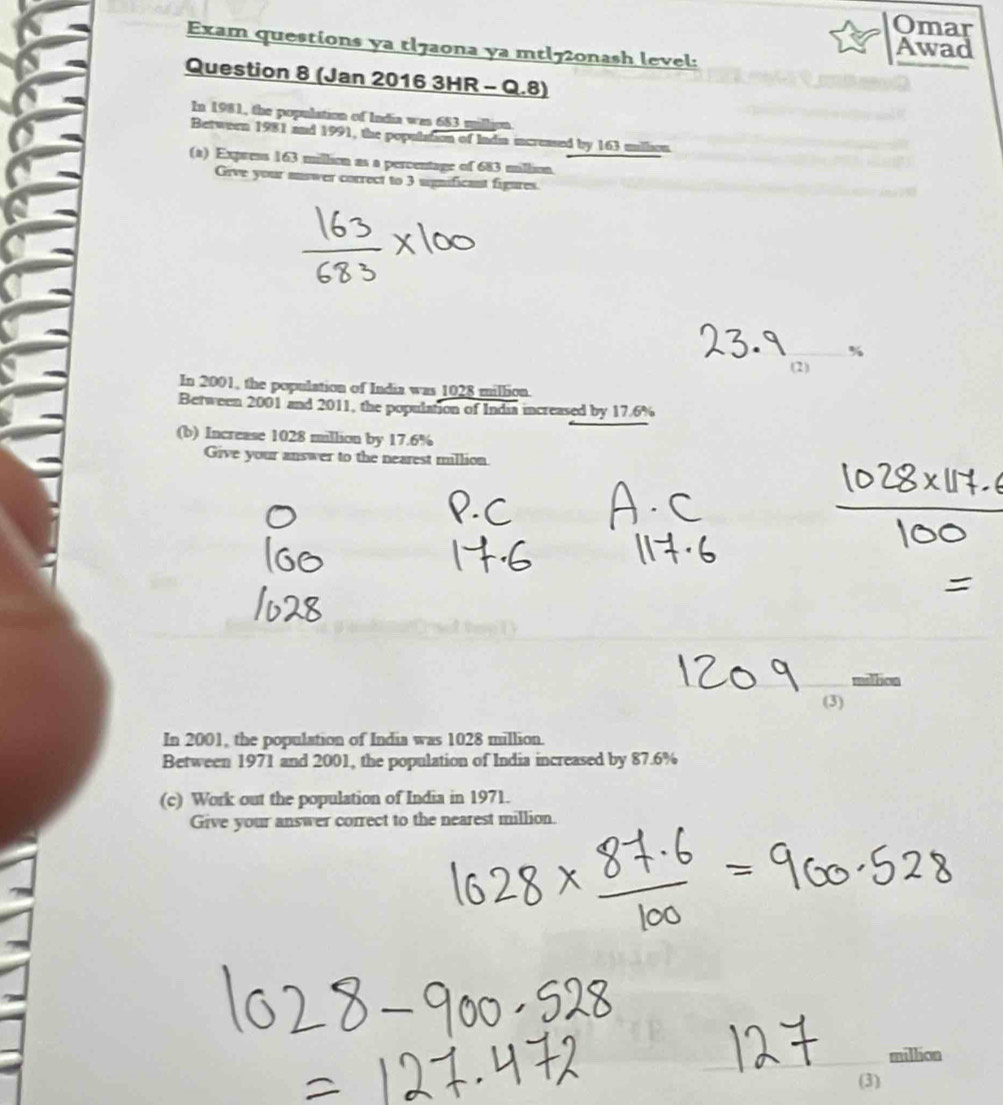 Omar
Awad
Exam questions ya tl7aona ya mtl72onash level:
Question 8 (Jan 2016 3HR – Q.8)
In 1981, the population of India was 683 million.
Between 1981 and 1991, the population of India increased by 163 million.
(a) Express 163 million as a percentage of 683 million.
Give your answer correct to 3 significant figures.
163/683 × 100
23.9 %
(2)
In 2001, the population of India was 1028 million.
Between 2001 and 2011, the population of India increased by 17.6%
(b) Increase 1028 million by 17.6%
Give your answer to the nearest million.
O P.C A.C
100 17.6 117.6
1028
1028 × 117.6
100
=
1209 million
(3)
In 2001, the population of India was 1028 million.
Between 1971 and 2001, the population of India increased by 87.6%
(c) Work out the population of India in 1971.
Give your answer correct to the nearest million.
1028 × 87.6/100 = 900.528
1028 - 900.528
= 127.472
127 million
(3)